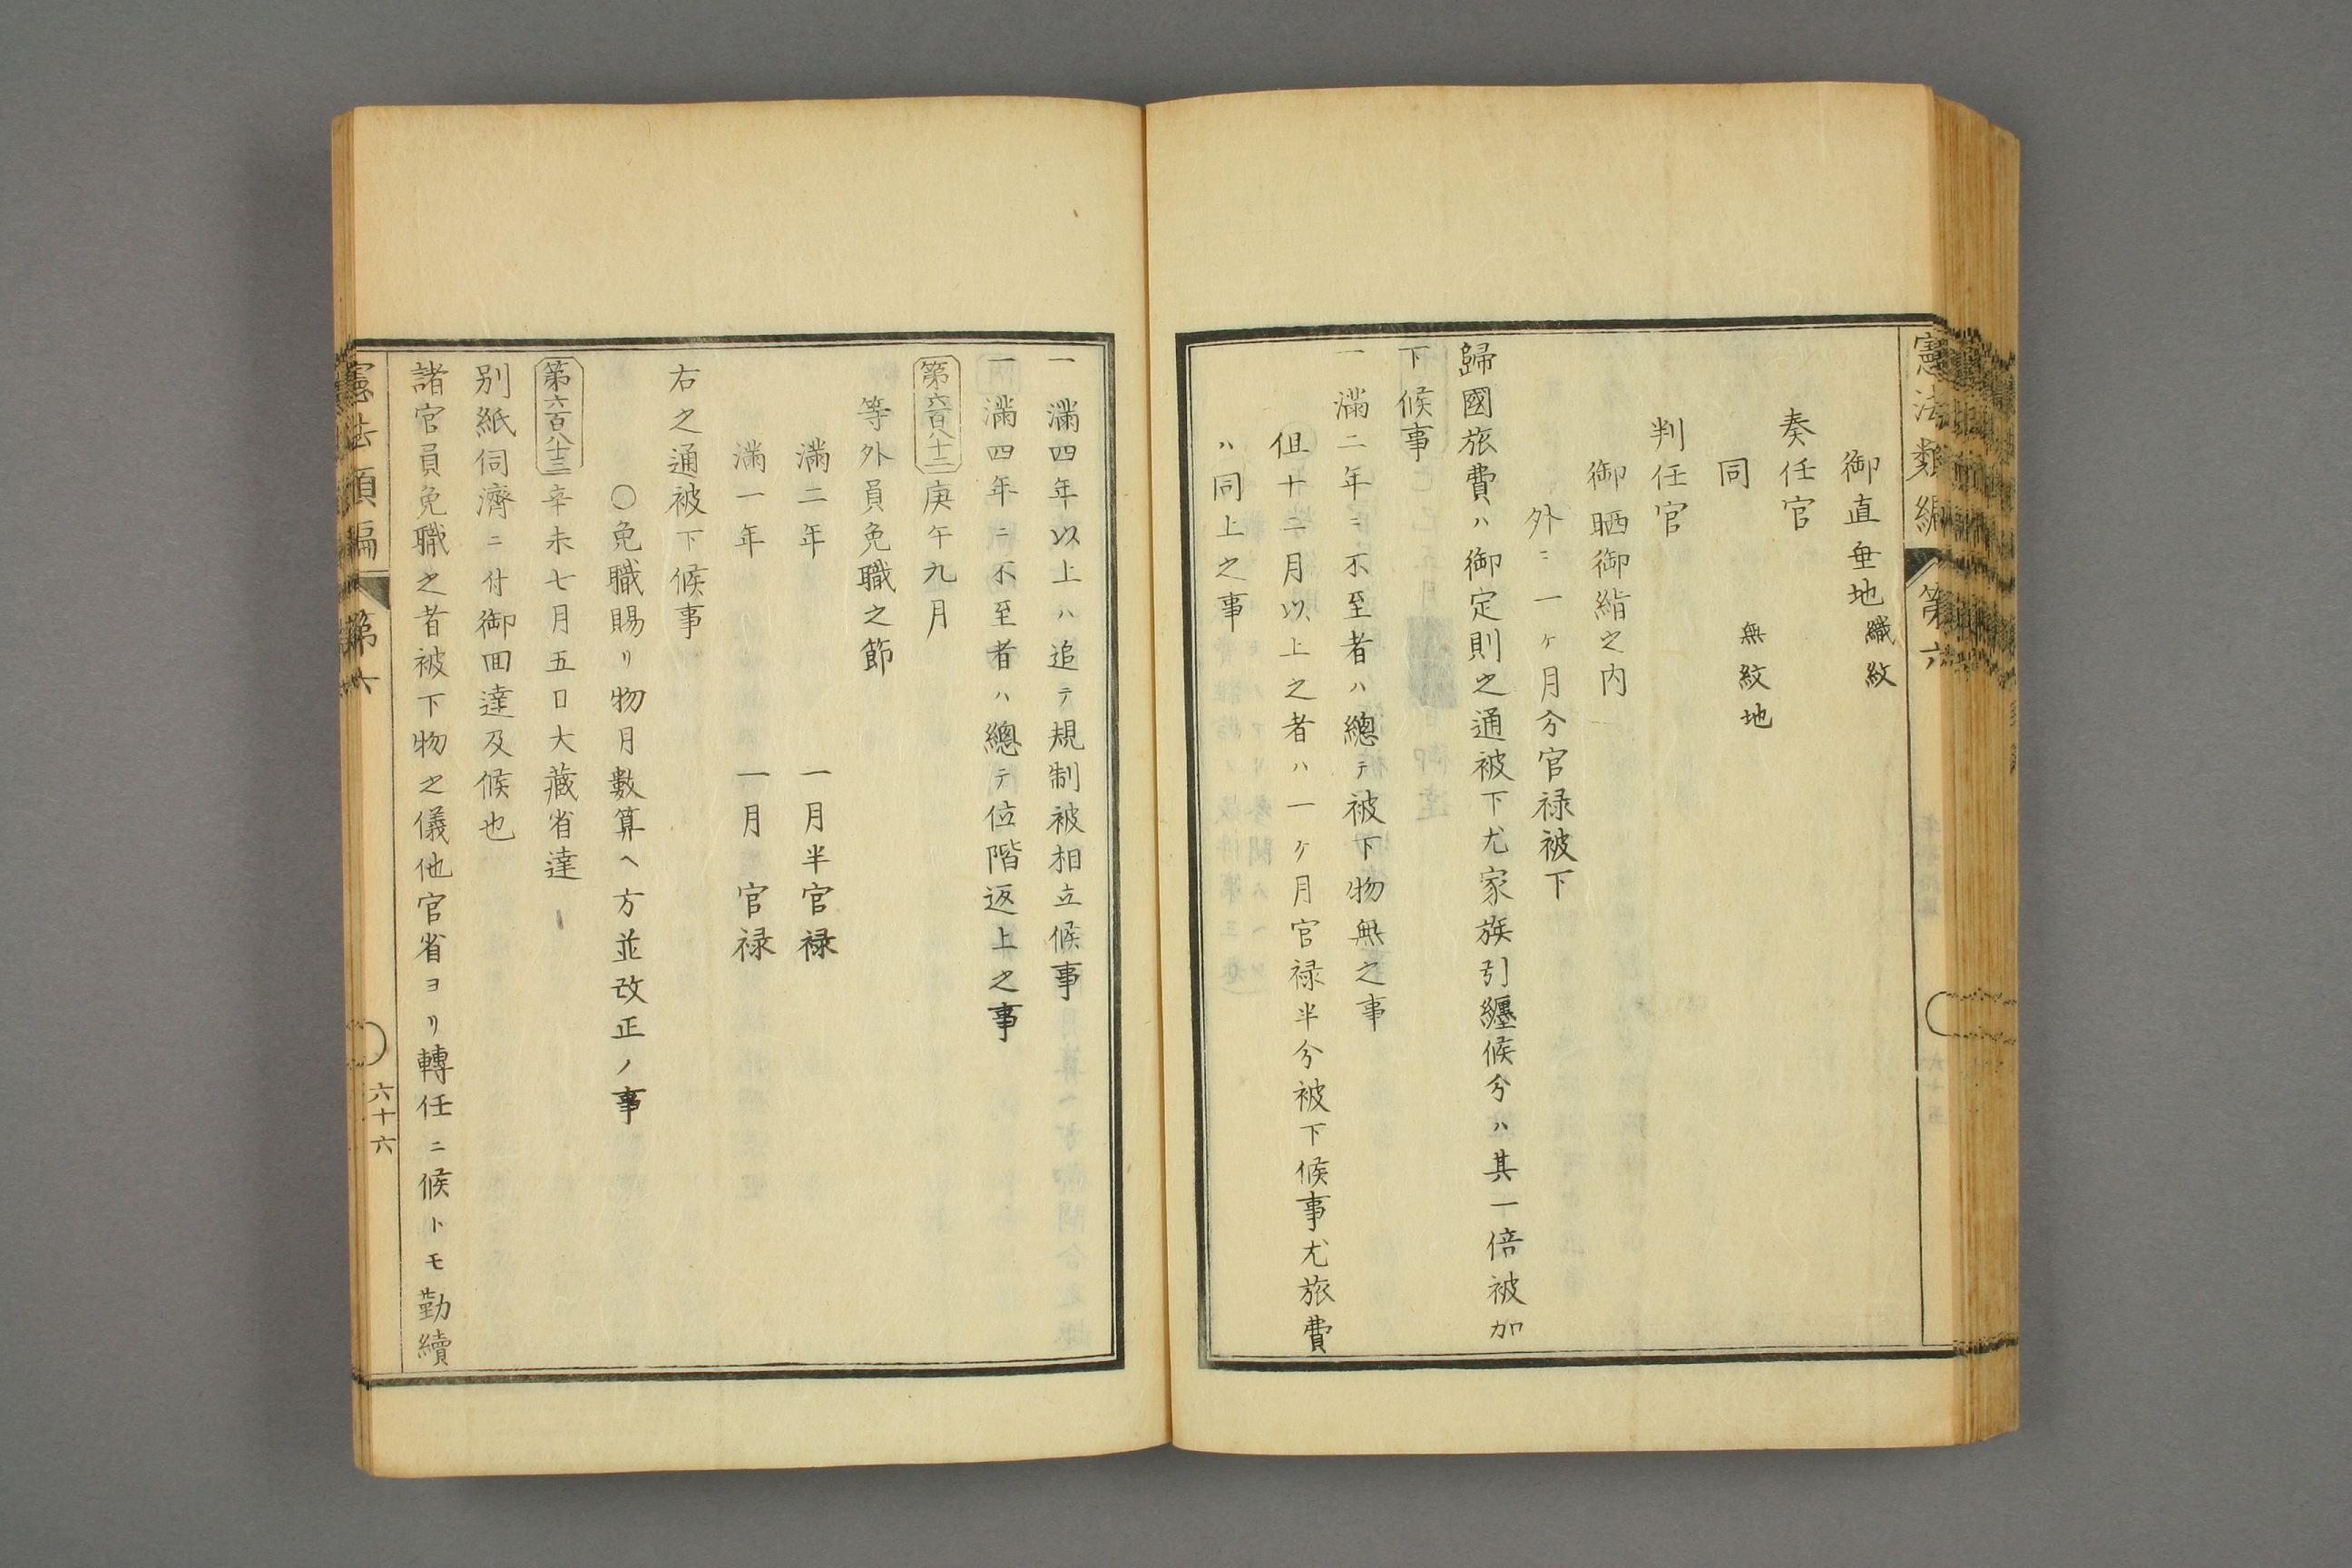 憲法類編 第六
御直垂地織紋
奏任官
同 無紋地
判任官
御晒御絹之内
外ニ一ヶ月分官禄被下
歸國旅費ハ御定則之通被下尤家族引纏候分ハ其一倍被加
下候事
一滿二年ニ不至者ハ總テ被下物無之事
但十二月以上之者ハ一ヶ月官禄半分被下候事尤旅費
ハ同上之事
一滿四年以上ハ追テ規制被相立候事
一滿四年ニ不至者ハ總テ位階返上之事
第六百八十二庚午九月
等外員免職之節
滿二年 一月半官禄
滿一年 一月官禄
右之通被下候事
〇免職賜リ物月數算ヘ方並改正ノ事
第六百八十三辛未七月五日大藏省達
別紙伺濟ニ付御囬達及候也
諸官員免職之者被下物之儀他官省ヨリ轉任ニ候トモ勤續
憲法類編 第六
六十六